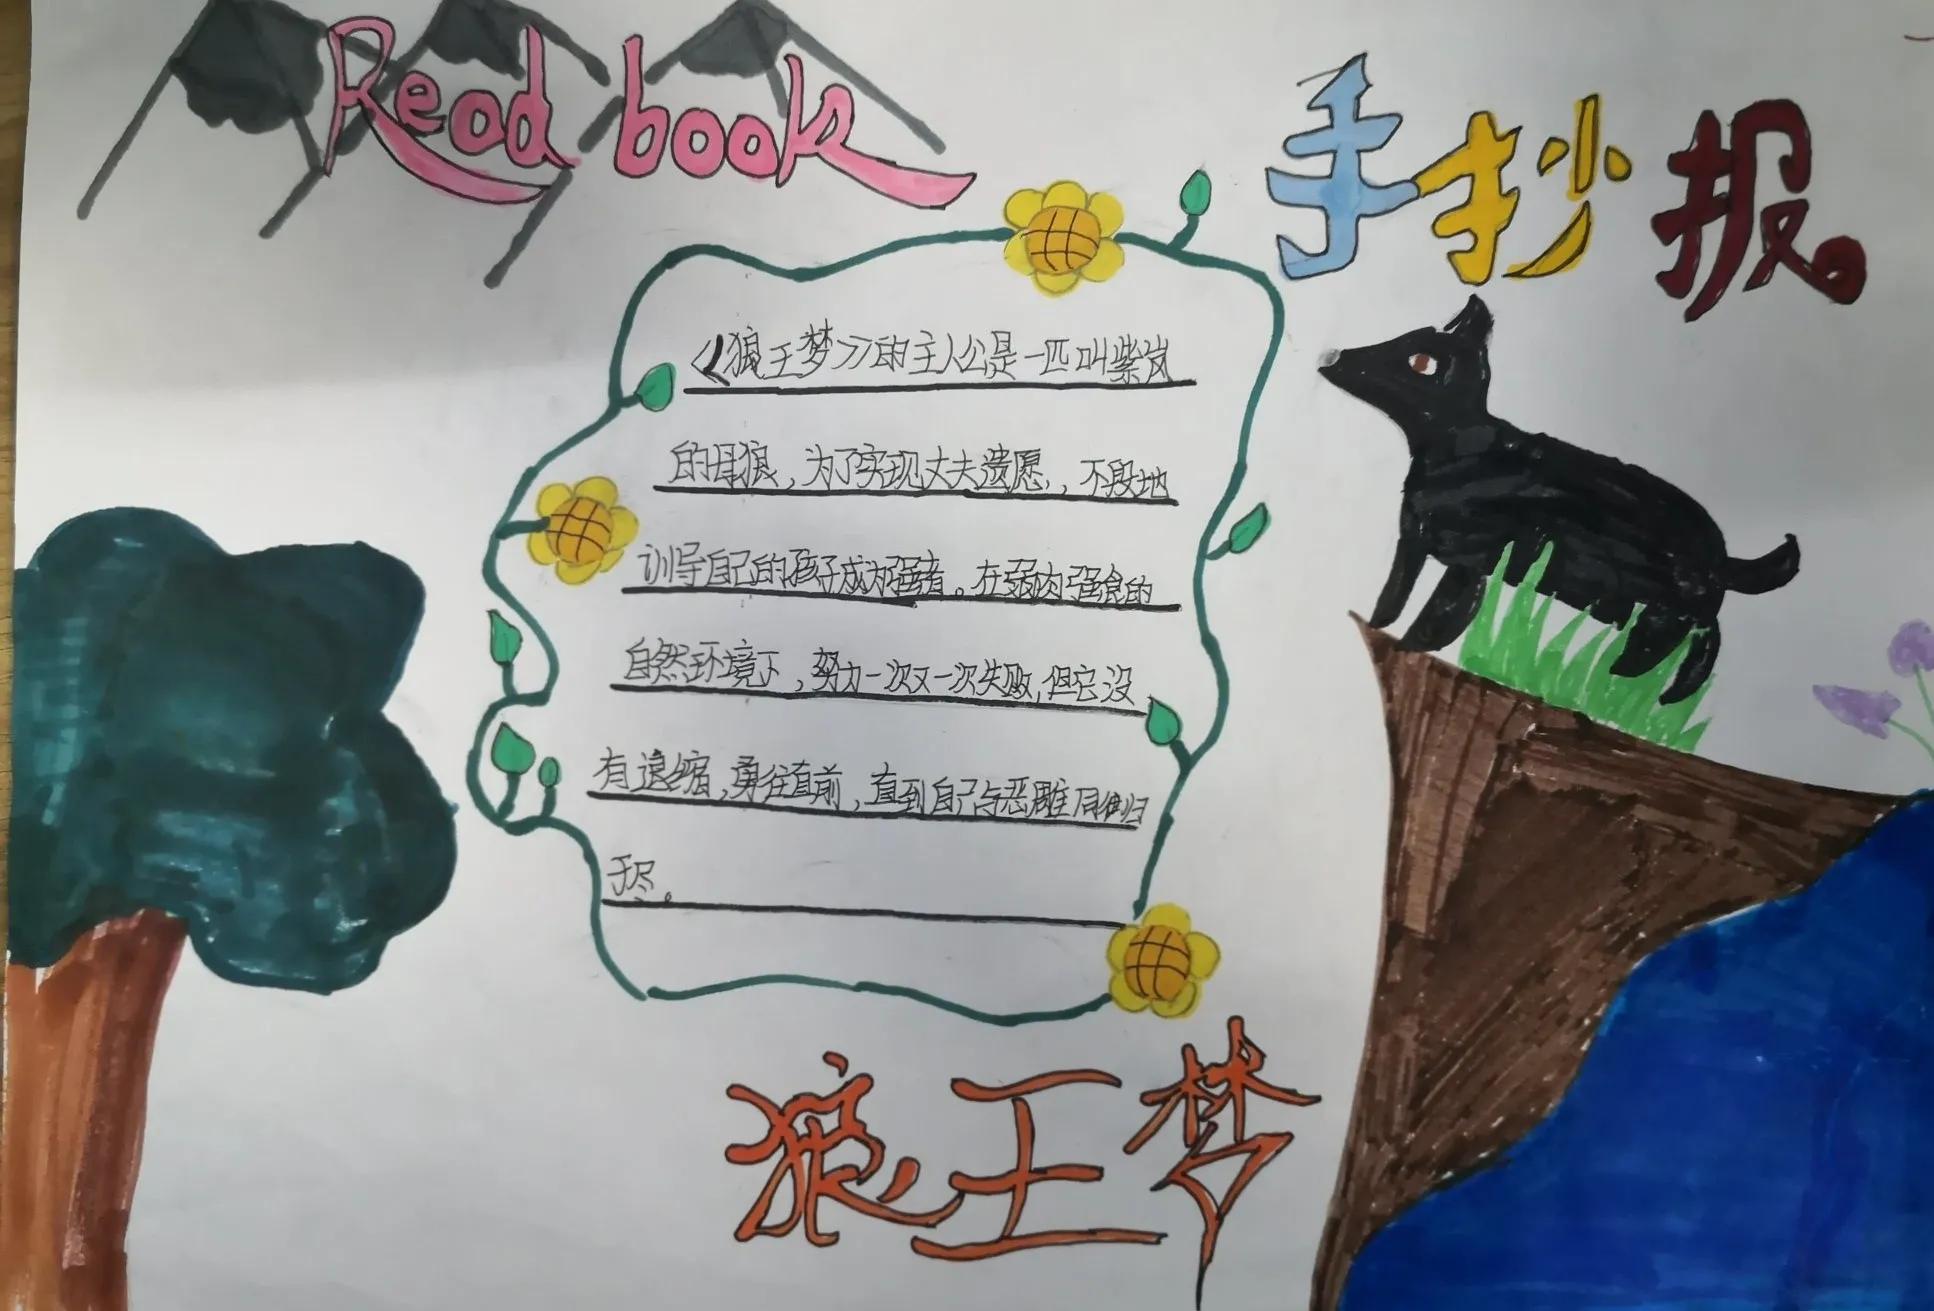 Read book
手抄报
《狼王梦》的主人公是一匹叫紫岚
的母狼，为了实现丈夫遗愿，不段地
训导自己的孩子成为强者。在弱肉强食的
自然环境下，努力一次又一次失败，但它没
有退缩，勇往直前，直到自己与恶雕同归
于尽。
狼王梦